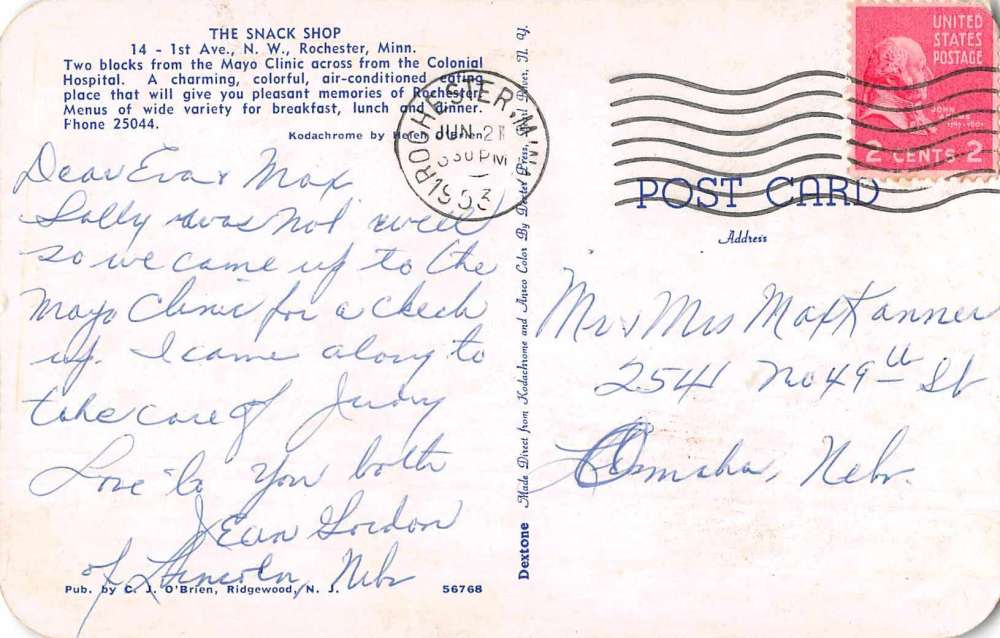 THE SNACK SHOP
14 - 1st Ave., N. W., Rochester, Minn.
Two blocks from the Mayo Clinic across from the Colonial
Hospital. A charming, colorful, air-conditioned eating
place that will give you pleasant memories of Rochester.
Menus of wide variety for breakfast, lunch and dinner.
Phone 25044.
Kodachrome by Helen O'Brien
Dear Eva & Max,
Sally was not well
so we came up to the
Mayo Clinic for a check
up. I came along to
take care of Judy
Love to you both
Jean Gordon
of Lincoln, Nebr
Pub. by C. J. O'Brien, Ridgewood, N. J.
56768
Dextone Made Direct from Kodachrome and Ansco Color By Dexter Press, Pearl River, N. Y.
ROCHESTER, MINN.
JUN 21
330 PM
1953
UNITED
STATES
POSTAGE
JOHN
ADAMS
2 CENTS 2
POST CARD
Address
Mr & Mrs Max Kanner
2541 No 49th St
Omaha, Nebr.